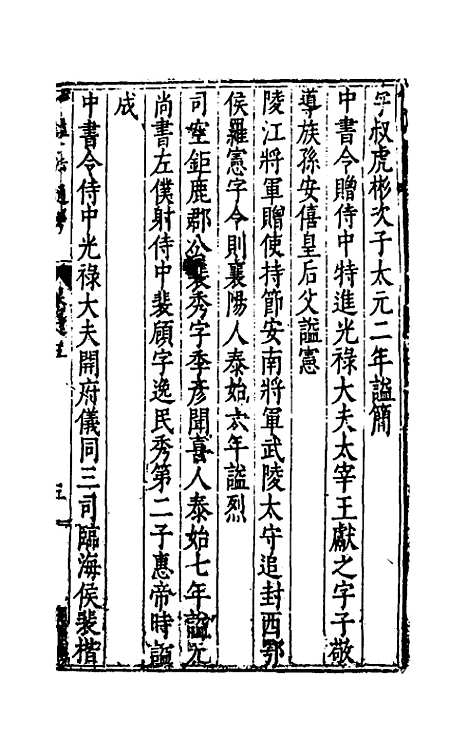 字叔虎彬次子太元二年謚簡
中書令贈侍中特進光祿大夫太宰王獻之字子敬
導族孫安僖皇后父謚憲
陵江將軍贈使持節安南將軍武陵太守追封西鄂
侯羅憲字令則襄陽人泰始六年謚烈
司空鉅鹿郡公裴秀字季彥聞喜人泰始七年謚元
尚書左僕射侍中裴頠字逸民秀第二子惠帝時謚
成
中書令侍中光祿大夫開府儀同三司臨海侯裴楷